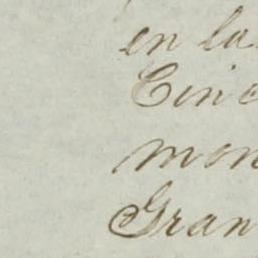 en la
Cinc
mon
Gran